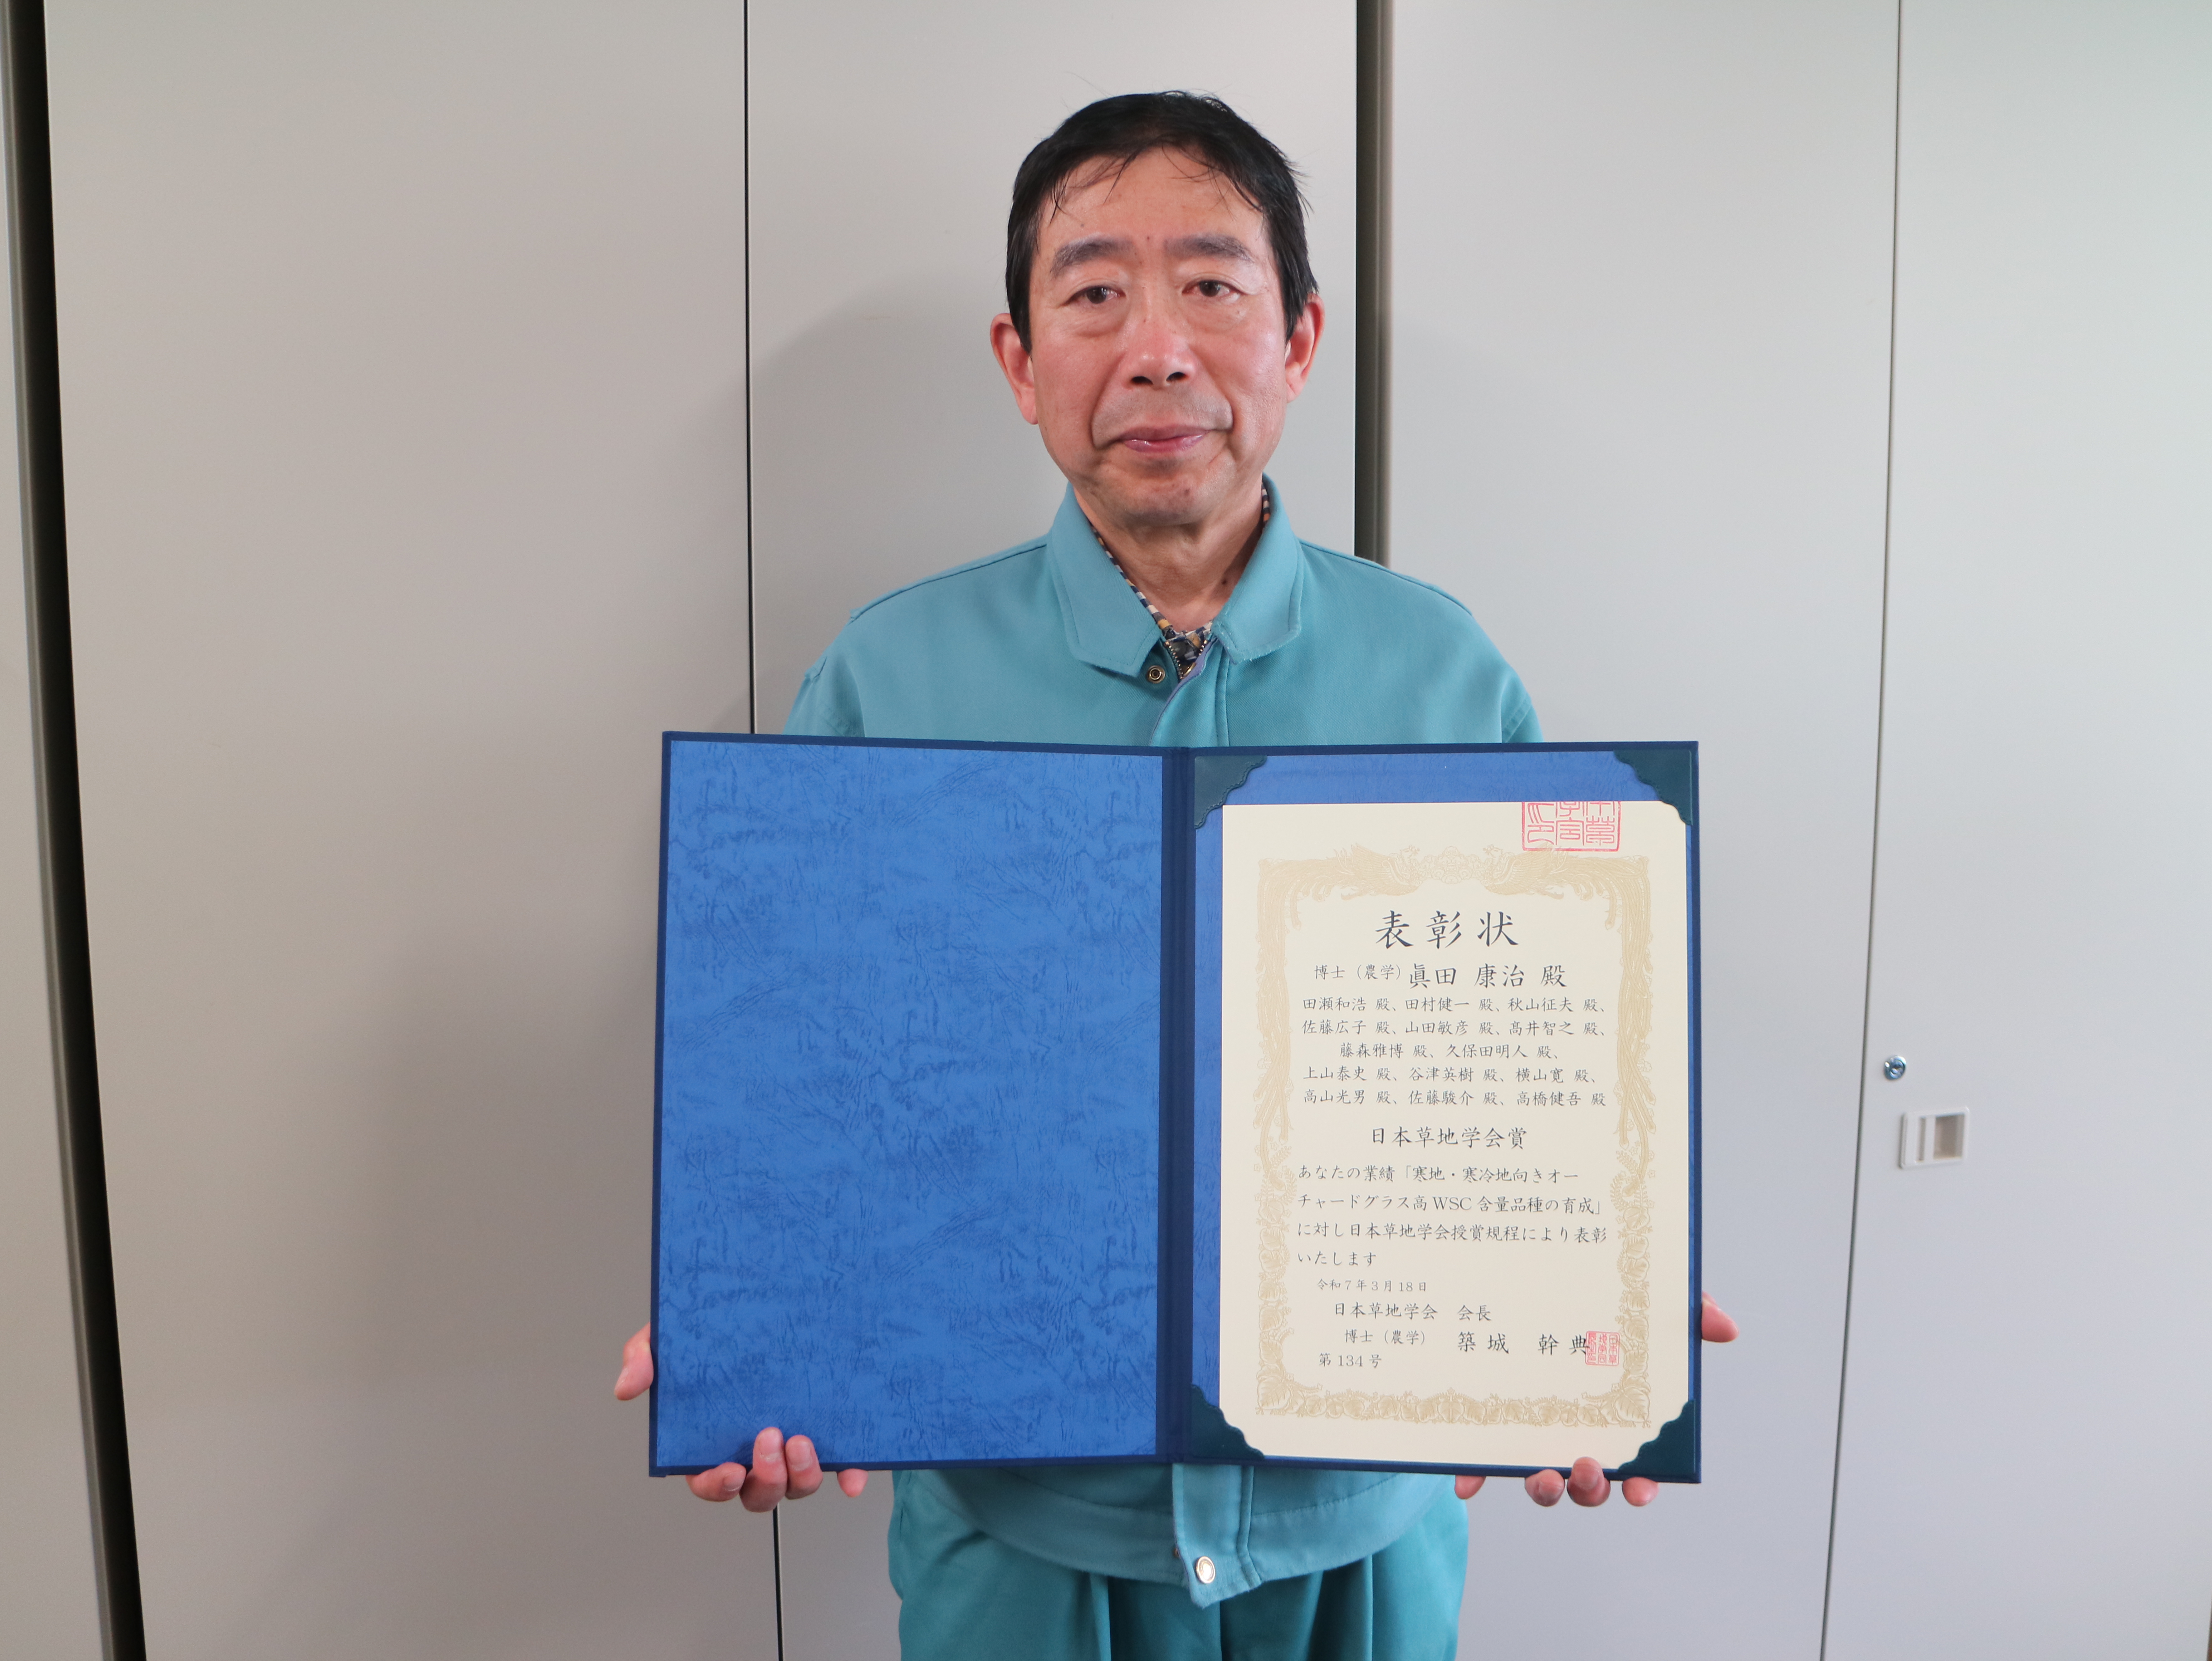 表彰状
博士（農学）眞田 康治 殿
田瀬和浩 殿、田村健一 殿、秋山征夫 殿、
佐藤広子 殿、山田敏彦 殿、高井智之 殿、
藤森雅博 殿、久保田明人 殿、
上山泰史 殿、谷津英樹 殿、横山寛 殿、
高山光男 殿、佐藤駿介 殿、高橋健吾 殿
日本草地学会賞
あなたの業績「寒地・寒冷地向きオー
チャードグラス高WSC含量品種の育成」
に対し日本草地学会授賞規程により表彰
いたします
令和7年3月18日
日本草地学会 会長
博士（農学） 築城 幹典
第134号